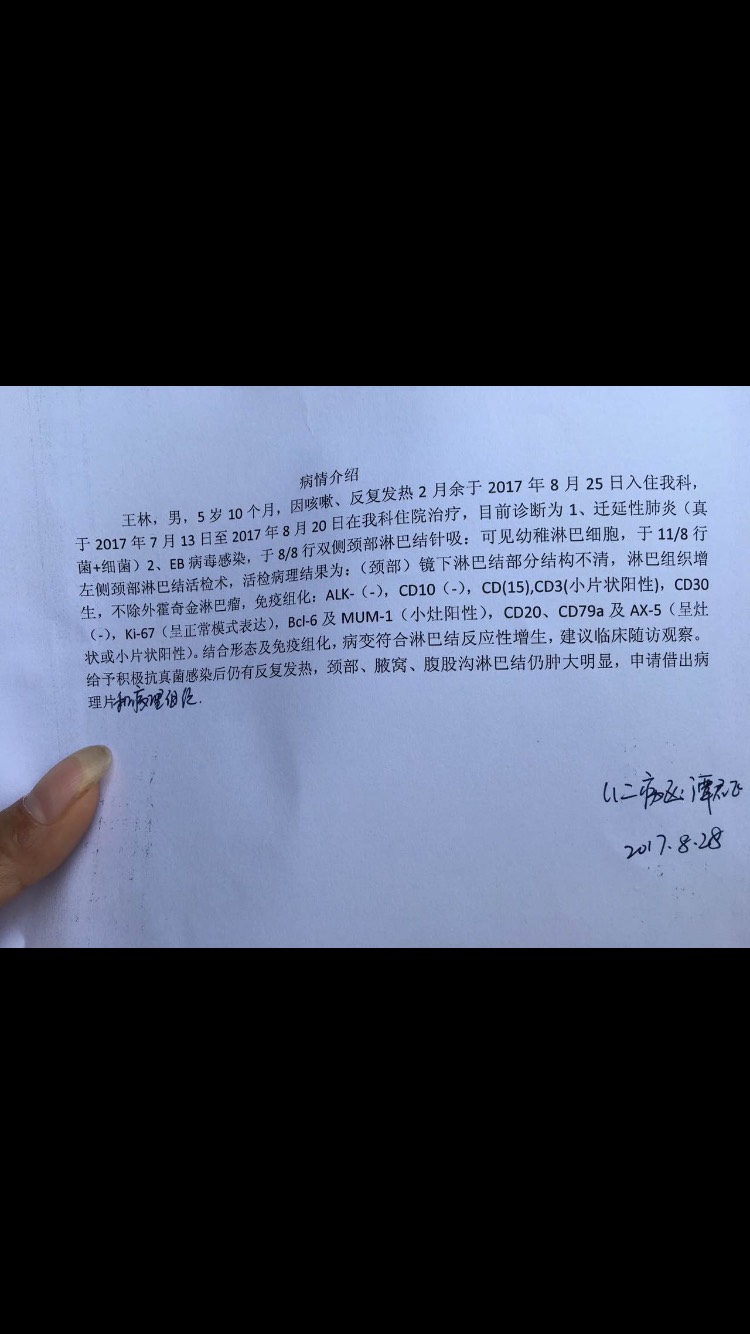 病情介绍
王林，男，5 岁 10 个月，因咳嗽、反复发热 2 月余于 2017 年 8 月 25 日入住我科，
于 2017 年 7 月 13 日至 2017 年 8 月 20 日在我科住院治疗，目前诊断为 1、迁延性肺炎（真
菌+细菌）2、EB 病毒感染，于 8/8 行双侧颈部淋巴结针吸：可见幼稚淋巴细胞，于 11/8 行
左侧颈部淋巴结活检术，活检病理结果为：（颈部）镜下淋巴结部分结构不清，淋巴组织增
生，不除外霍奇金淋巴瘤，免疫组化：ALK-（-），CD10（-），CD(15),CD3(小片状阳性)，CD30
（-)，Ki-67（呈正常模式表达)，Bcl-6 及 MUM-1（小灶阳性），CD20、CD79a 及 AX-5（呈灶
状或小片状阳性）。结合形态及免疫组化，病变符合淋巴结反应性增生，建议临床随访观察。
给予积极抗真菌感染后仍有反复发热，颈部、腋窝、腹股沟淋巴结仍肿大明显，申请借出病
理片和病理组织.
二病区
2017.8.28